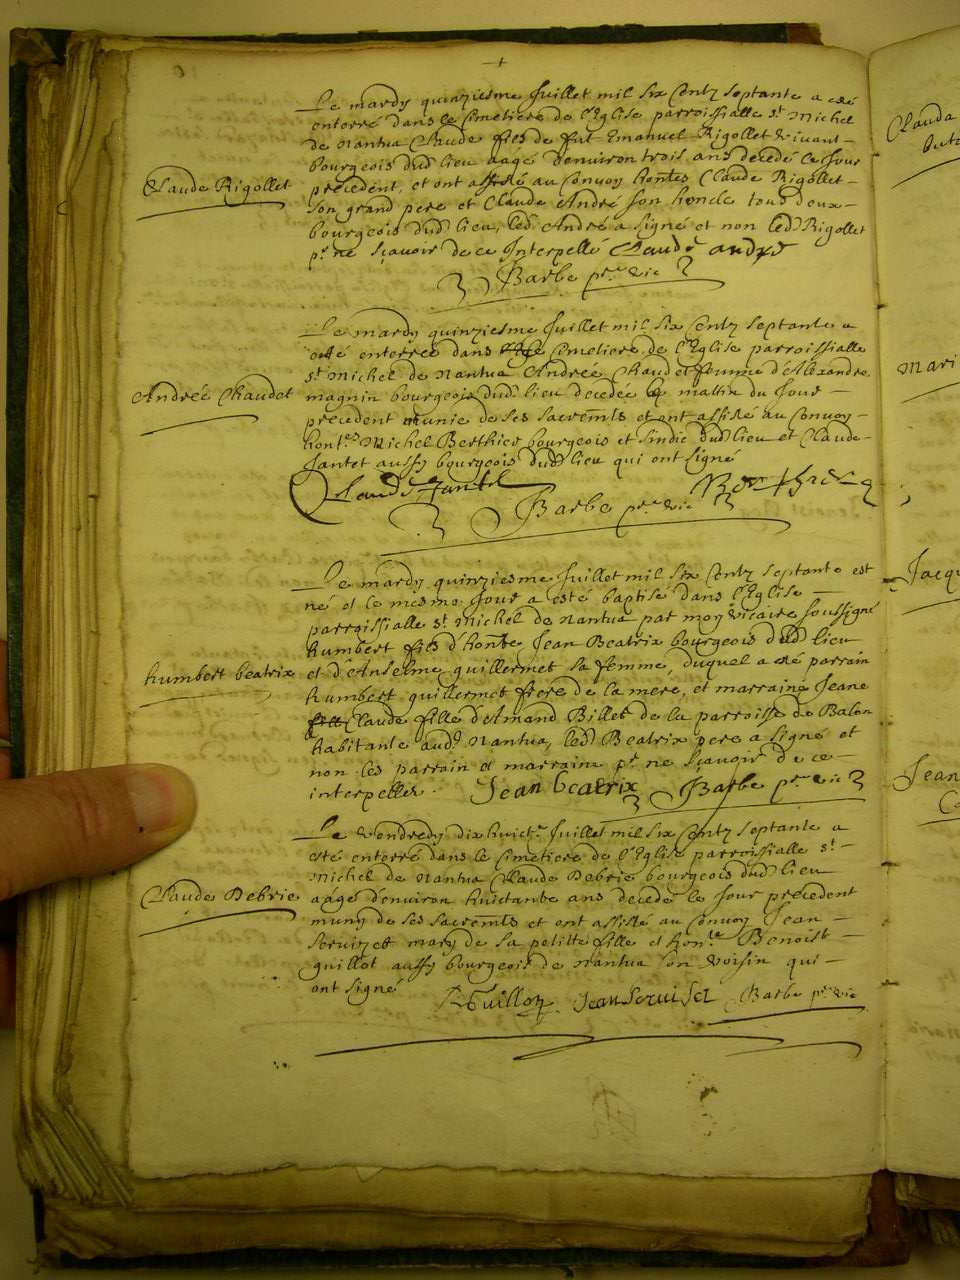 Le mardy quinziesme Juillet mil six centz septante a esté
enterré dans le Cimetiere de l'Eglise parroissialle st Michel
de Nantua Claude fils de fut Emanuel Rigollet vivant
bourgeois dud lieu aagé d'environ trois ans decedé le Jour
Claude Rigollet
precedent, et ont assisté au Convoy hontes Claude Rigollet
son grand pere et Claude André son honcle tous deux
bourgeois dud lieu, led André a signé et non led Rigollet
pr ne sçavoir de ce Interpellé Claude andré
Barbe pre vic
Le mardy quinziesme Juillet mil six centz septante a
esté enterrée dans le Cimetiere de l'Eglise parroissialle
st Michel de Nantua Andree Chaudet femme d'Alexandre
Andreé Chaudet
magnin bourgeois dud lieu decedée le mattin du Jour
precedent munie de ses sacremts et ont assisté au Convoy
hontes Michel Berthier bourgeois et sindic dud lieu et Claude
Jantet aussy bourgeois dud lieu qui ont signé
Claude Jantet
Barbe pre vic
Le mardy quinziesme Juillet mil six centz septante est
né et le mesme Jour a esté baptisé dans l'Eglise
parroissialle st Michel de Nantua par moy vicaire soussigné
humbert fils d'honte Jean Beatrix bourgeois dud lieu
humbert beatrix
et d'Anselme guillermet sa femme, duquel a eté parrain
humbert guillermet frere de la mere, et marraine Jeane
Claude fille d'Amand Billet de la parroisse de Balon
habitante aud Nantua, led Beatrix pere a signé et
non les parrain et marraine pr ne sçavoir de ce
interpelles. Jean beatrix Barbe pre vic
Le vendredy dix huicte Juillet mil six centz septante a
esté enterré dans le Cimetiere de l'Eglise parroissialle st
Michel de Nantua Claude Debrie bourgeois dud lieu
Claude Debrie
aagé d'environ huictante ans decedé le Jour precedent
muny de ses sacremts et ont assisté au Convoy Jean
Servizet mary de sa petitte fille et honte Benoist
guillot aussy bourgeois de Nantua son voisin qui
ont signé
Guillot Jean Serviset Barbe pre vic
Clauda
Mari
Jacqu
Jean